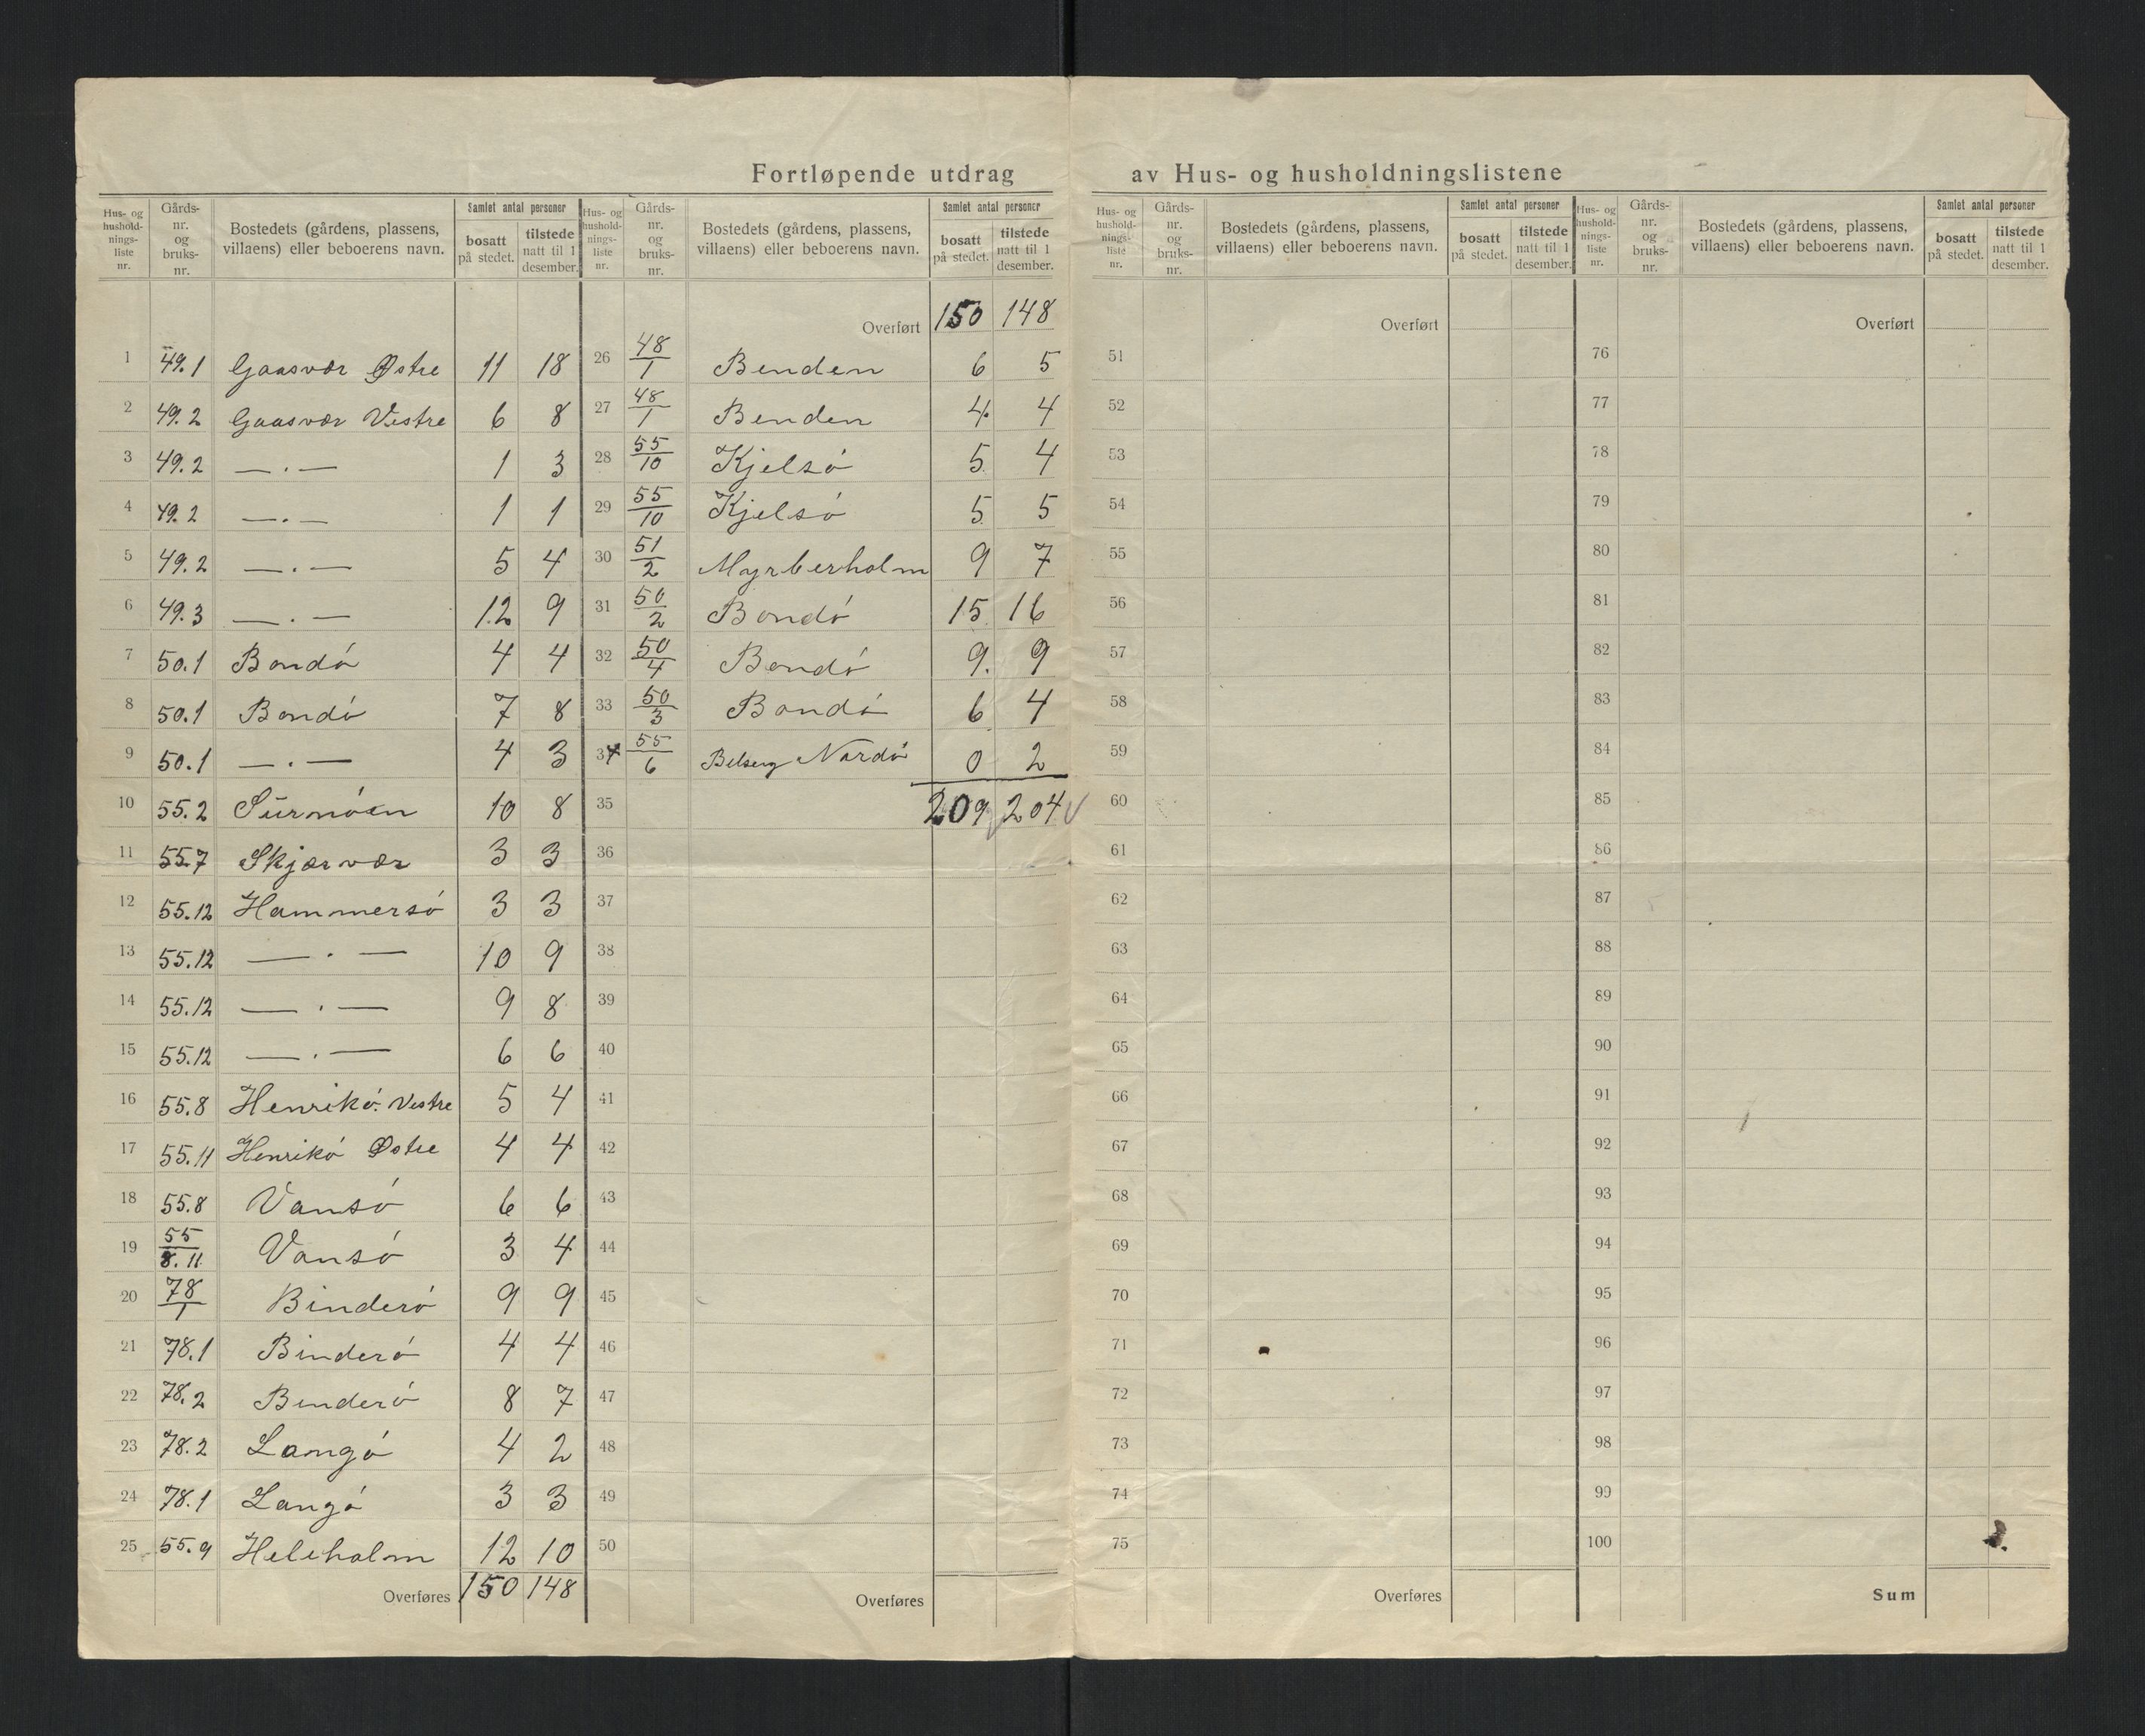 Fortløpende utdrag av Hus- og husholdningslistene
Hus- og husholdnings-liste nr. | Gårds-nr. og bruks-nr. | Bostedets (gårdens, plassens, villaens) eller beboerens navn. | Samlet antal personer | bosatt på stedet. | tilstede natt til 1 desember.
1 49.1 Gaasvær Østre 11 18
2 49.2 Gaasvær Vestre 6 8
3 49.2 — . — 1 3
4 49.2 — . — 1 1
5 49.2 — . — 5 4
6 49.3 — . — 12 9
7 50.1 Bondó 4 4
8 50.1 Bondó 7 8
9 50.1 — . — 4 3
10 55.2 Surnóen 10 8
11 55.7 Skjærvær 3 3
12 55.12 Hammersó 3 3
13 55.12 — . — 10 9
14 55.12 — . — 9 8
15 55.12 — . — 6 6
16 55.8 Henrikó. Vestre 5 4
17 55.11 Henrikó Østre 4 4
18 55.8 Vansó 6 6
19 55/8.11 Vansó 3 4
20 78/1 Binderó 9 9
21 78.1 Binderó 4 4
22 78.2 Binderó 8 7
23 78.2 Langó 4 2
24 78.1 Langó 3 3
25 55.9 Heleholm 12 10
Overføres 150 148
Hus- og husholdnings-liste nr. | Gårds-nr. og bruks-nr. | Bostedets (gårdens, plassens, villaens) eller beboerens navn. | Samlet antal personer | bosatt på stedet. | tilstede natt til 1 desember.
Overført 150 148
26 48/1 Benden 6 5
27 48/1 Benden 4 4
28 55/10 Kjelsó 5 4
29 55/10 Kjelsó 5 5
30 51/2 Myrberholm 9 7
31 50/2 Bondó 15 16
32 50/4 Bondó 9. 9
33 50/3 Bondó 6 4
34 55/6 Nordó 0 2
35 209 204
36
37
38
39
40
41
42
43
44
45
46
47
48
49
50
Overføres
Hus- og hushold-nings-liste nr. | Gårds-nr. og bruks-nr. | Bostedets (gårdens, plassens, villaens) eller beboerens navn. | Samlet antal personer | bosatt på stedet. | tilstede natt til 1 desember.
Overført
51
52
53
54
55
56
57
58
59
60
61
62
63
64
65
66
67
68
69
70
71
72
73
74
75
Overføres
Hus- og hushold-nings-liste nr. | Gårds-nr. og bruks-nr. | Bostedets (gårdens, plassens, villaens) eller beboerens navn. | Samlet antal personer | bosatt på stedet. | tilstede natt til 1 desember.
Overført
76
77
78
79
80
81
82
83
84
85
86
87
88
89
90
91
92
93
94
95
96
97
98
99
100
Sum